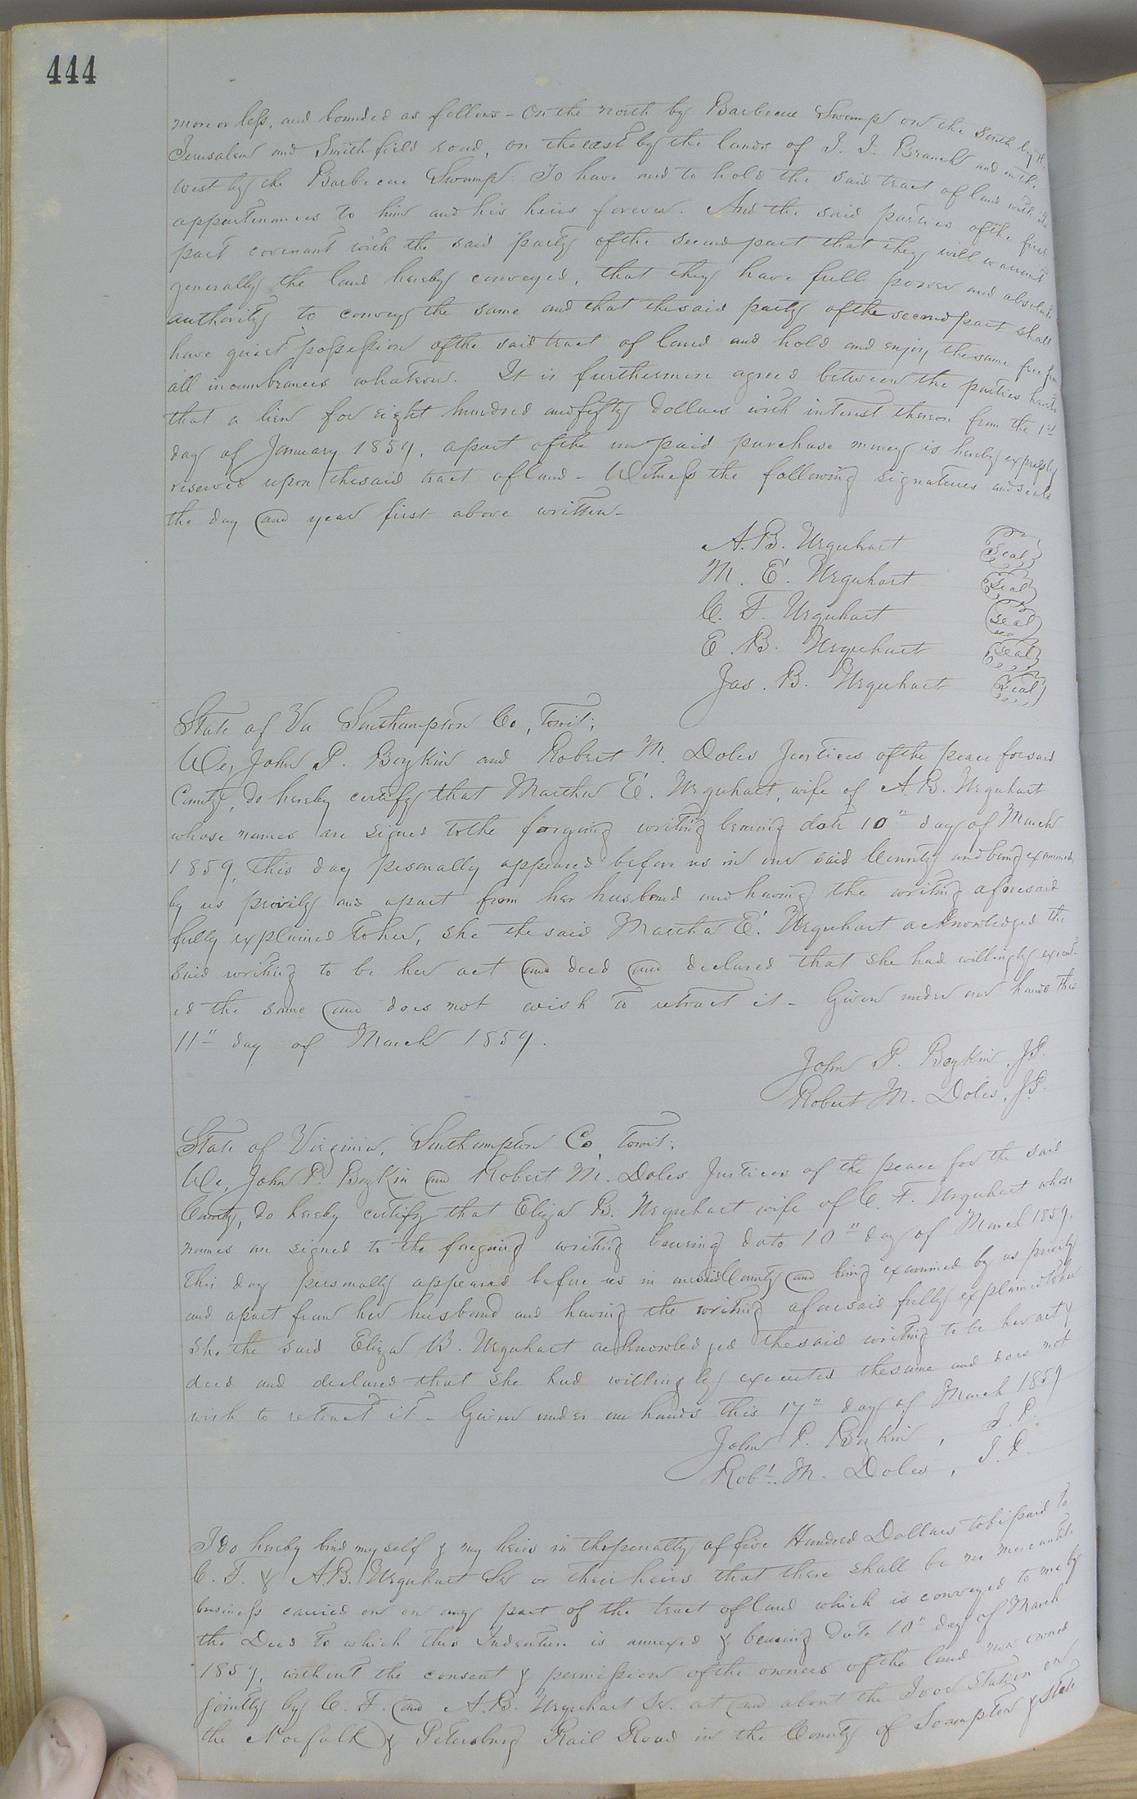 444
more or less, and bounded as follows - On the north by Barbecue Swamp on the South by the
Jerusalem and Smithfield road, on the east by the lands of J. J. Branch and on the
west by the Barbecue Swamp. To have and to hold the said tract of land with the
appurtenances to him and his heirs forever. And the said parties of the first
part covenant with the said party of the second part that they will warrant
generally the land hereby conveyed, that they have full power and absolute
authority to convey the same and that the said party of the second part shall
have quiet possession of the said tract of land and hold and enjoy the same free from
all incumbrances whatsoever. It is furthermore agreed between the parties hereto
that a lien for eight hundred and fifty dollars with interest thereon from the 1st
day of January 1859, a part of the unpaid purchase money is hereby expressly
reserved upon the said tract of land - Witness the following signatures and seals
the day and year first above written -
A. B. Urquhart Seal
M. E. Urquhart Seal
C. F. Urquhart Seal
E. B. Urquhart Seal
Jas. B. Urquhart Seal
State of Va Southampton Co, towit;
We, John P. Boykin and Robert M. Doles Justices of the peace for said
County, do hereby certify that Martha E. Urquhart, wife of A. B. Urquhart
whose names are signed to the forgoing writing bearing date 10" day of March
1859, this day personally appeared before us in our said County and being examined
by us privily and apart from her husband and having the writing aforesaid
fully explained to her, she the said Martha E. Urquhart acknowledged the
said writing to be her act and deed and declared that she had willingly execut-
ed the same and does not wish to retract it - Given under our hands this
11" day of March 1859.
John P. Boykin, J.P.
Robert M. Doles, J.P.
State of Virginia, Southampton Co, towit;
We, John P. Boykin and Robert M. Doles Justices of the peace for the said
County, do hereby certify that Eliza B. Urquhart wife of C. F. Urquhart whose
names are signed to the foregoing writing bearing date 10" day of March 1859.
this day personally appeared before us in our said County and being examined by us privily
and apart from her husband and having the writing aforesaid fully explained to her
she the said Eliza B. Urquhart acknowledged the said writing to be her act &
deed and declared that she had willingly executed the same and does not
wish to retract it - Given under our hands this 17" day of March 1859
John P. Boykin, J.P.
Robt. M. Doles, J.P.
I do hereby bind myself & my heirs in the penalty of five Hundred Dollars to be paid to
C. F. & A. B. Urquhart Sr or their heirs that there shall be no mercantile
business carried on on any part of the tract of land which is conveyed to me by
the Deed to which this Indenture is annexed & bearing date 10" day of March
1859, without the consent & permission of the owners of the land now owned
jointly by C. F. and A. B. Urquhart Sr. at and about the Ivor Station on
the Norfolk & Petersburg Rail Road in the County of Sompton & State